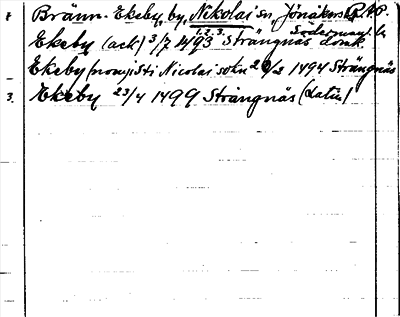 Bränn-Ekeby, by, Nikolai sn, Jönåkers
Södermanl. l.
1. 2. 3.
Ekeby (ack) 3/7 1493 Strängnäs domk.
Ekeby (nom) Sti Nicolai sokn 1494 Strängnäs
3. Ekeby 23/4 1499 Strängnäs (latin)